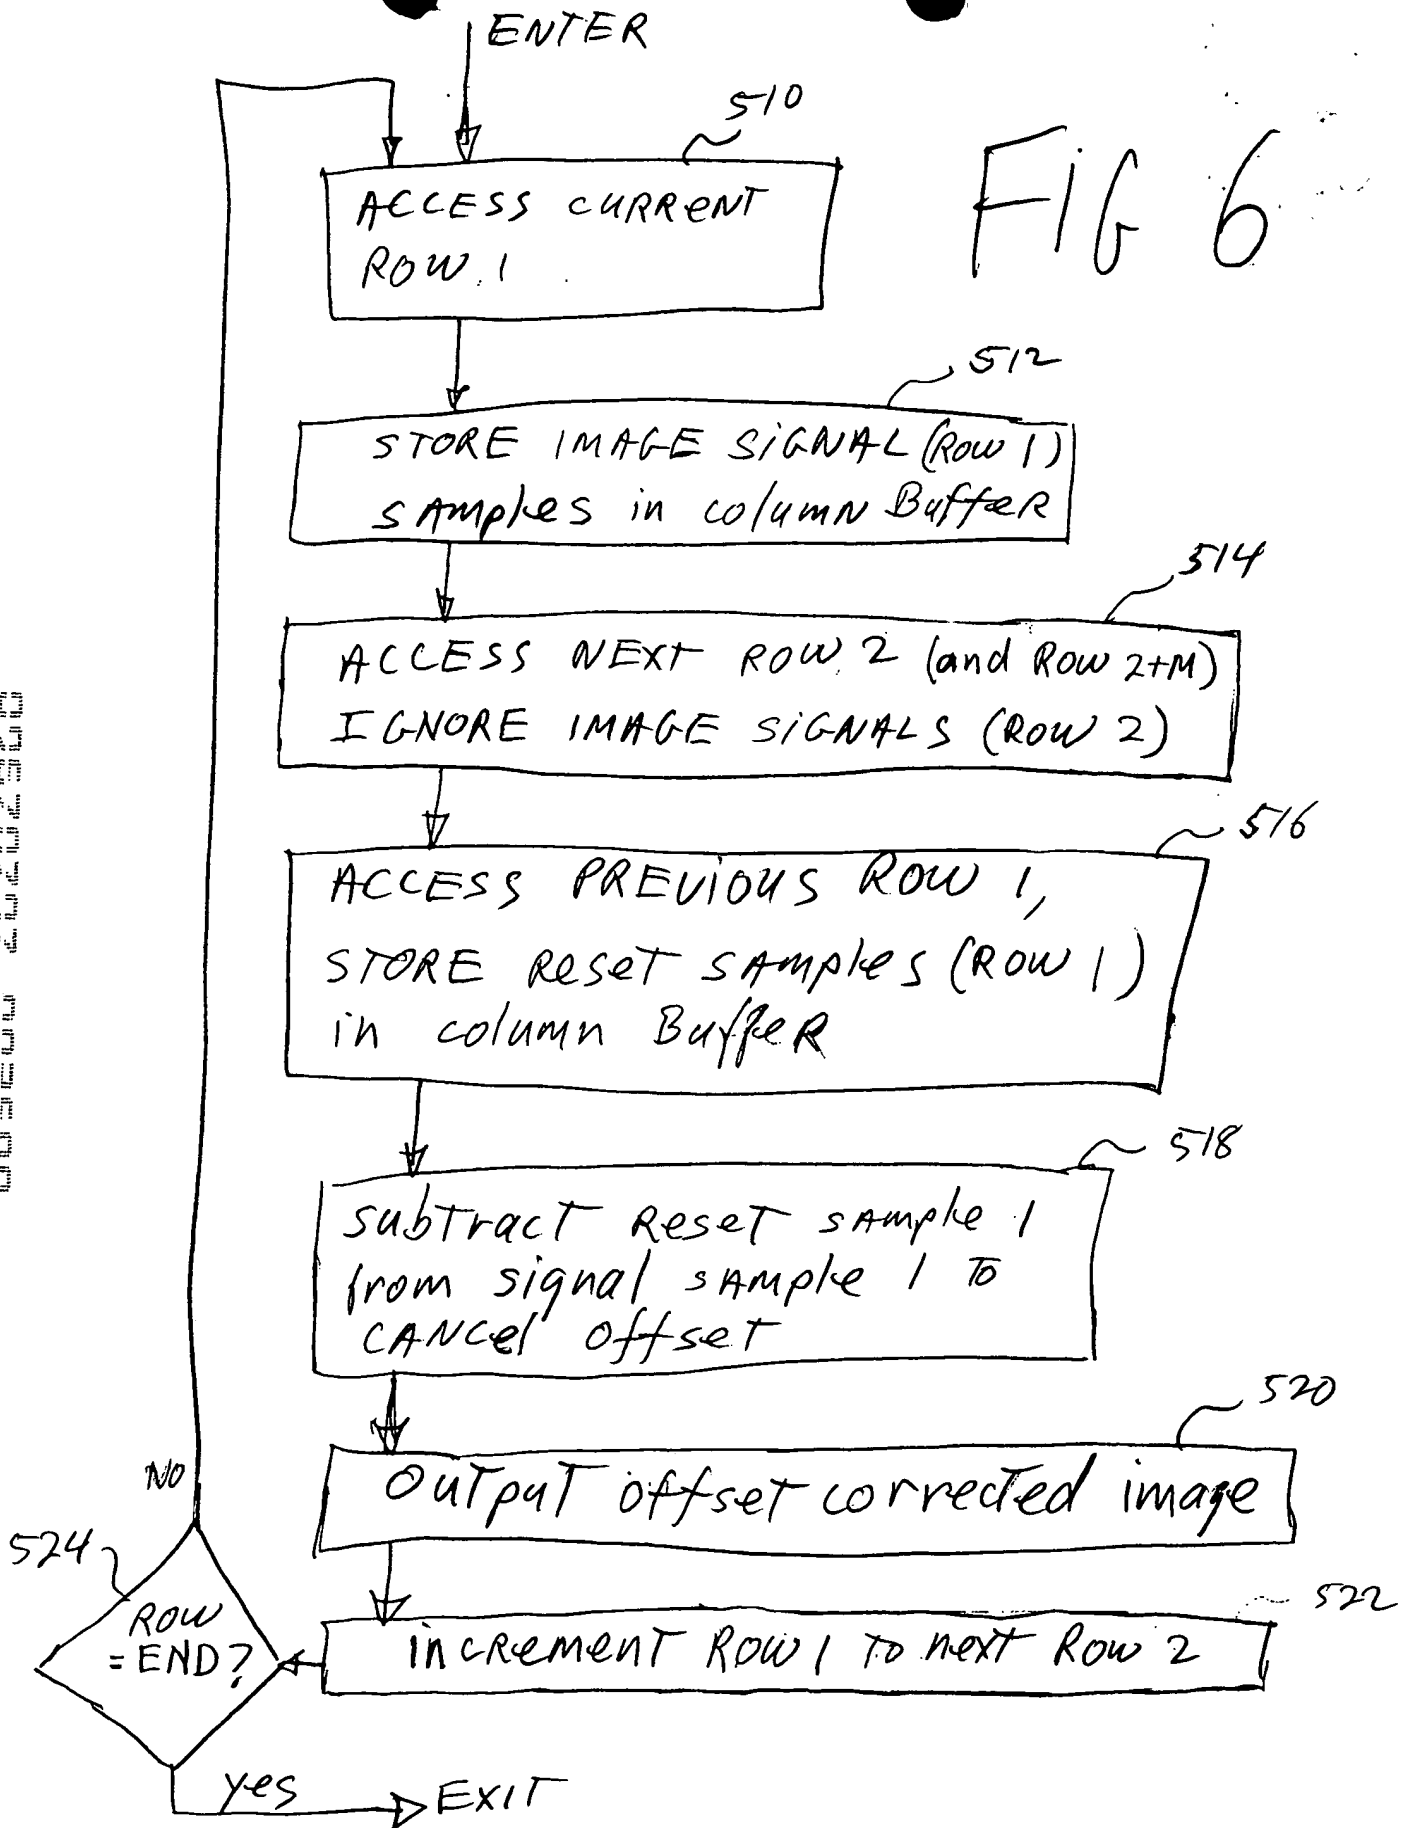 ENTER
510
FIG 6
ACCESS CURRENT
ROW 1
512
STORE IMAGE SIGNAL (ROW 1)
SAMPLES in column BuffeR
514
ACCESS NEXT ROW 2 (and Row 2+M)
IGNORE IMAGE SIGNALS (ROW 2)
516
ACCESS PREVIOUS ROW 1,
STORE ReseT SAmples (ROW 1)
in column BuffeR
518
SubTracT ReseT sAmple 1
from signal sAmple 1 To
CANCel offseT
520
OuTpuT offseT correcTed image
522
inCRemenT Row 1 To nexT Row 2
NO
524
ROW
= END?
yes
EXIT